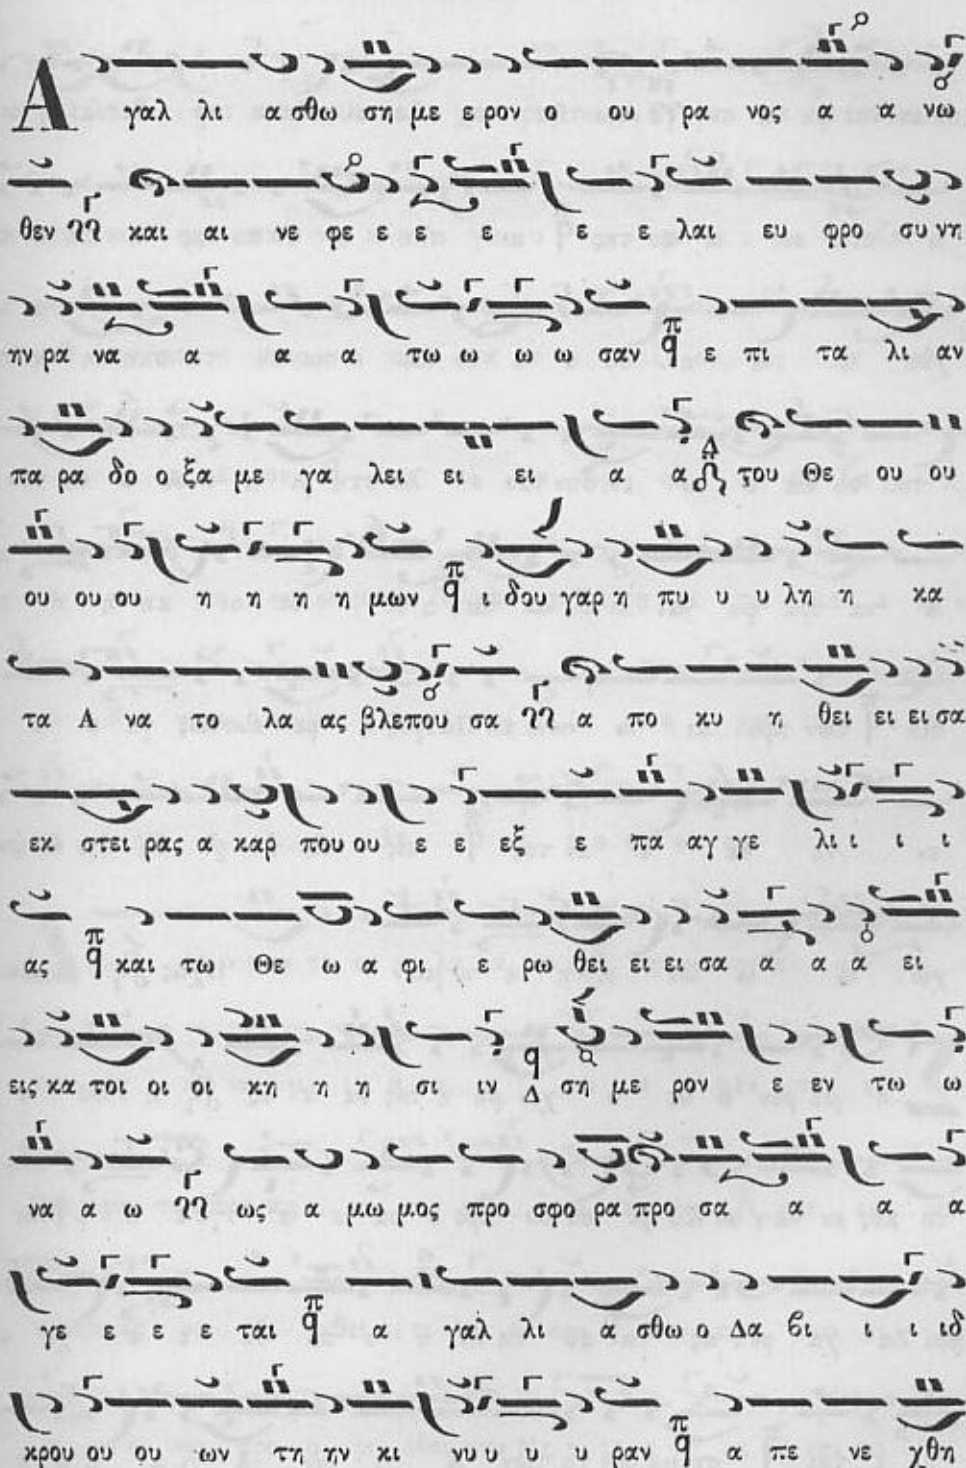 Α γαλ λι α σθω ση με ε ρον ο ου ρα νος α α νω
θεν και αι νε φε ε ε ε ε ε ε λαι ευ φρο συ νη
ην ρα να α α α τω ω ω ω σαν π q ε πι τα λι αν
πα ρα δο ο ξα με γα λει ει ει α α Δ του Θε ου ου
ου ου ου η η η η μων π q ι δου γαρ η πυ υ υ λη η κα
τα Α να το λα ας βλεπου σα α πο κυ η θει ει ει σα
εκ στει ρας α καρ που ου ε ε εξ ε πα αγ γε λι ι ι ι
ας π q και τω Θε ω α φι ε ρω θει ει ει σα α α α ει
εις κα τοι οι οι κη η η σι ιν q Δ ση με ρον ε εν τω ω
να α ω ως α μω μος προ σφο ρα προ σα α α α
γε ε ε ε ται π q α γαλ λι α σθω ο Δα βι ι ι ιδ
κρου ου ου ων τη ην κι νυ υ υ υ ραν π q α πε νε χθη